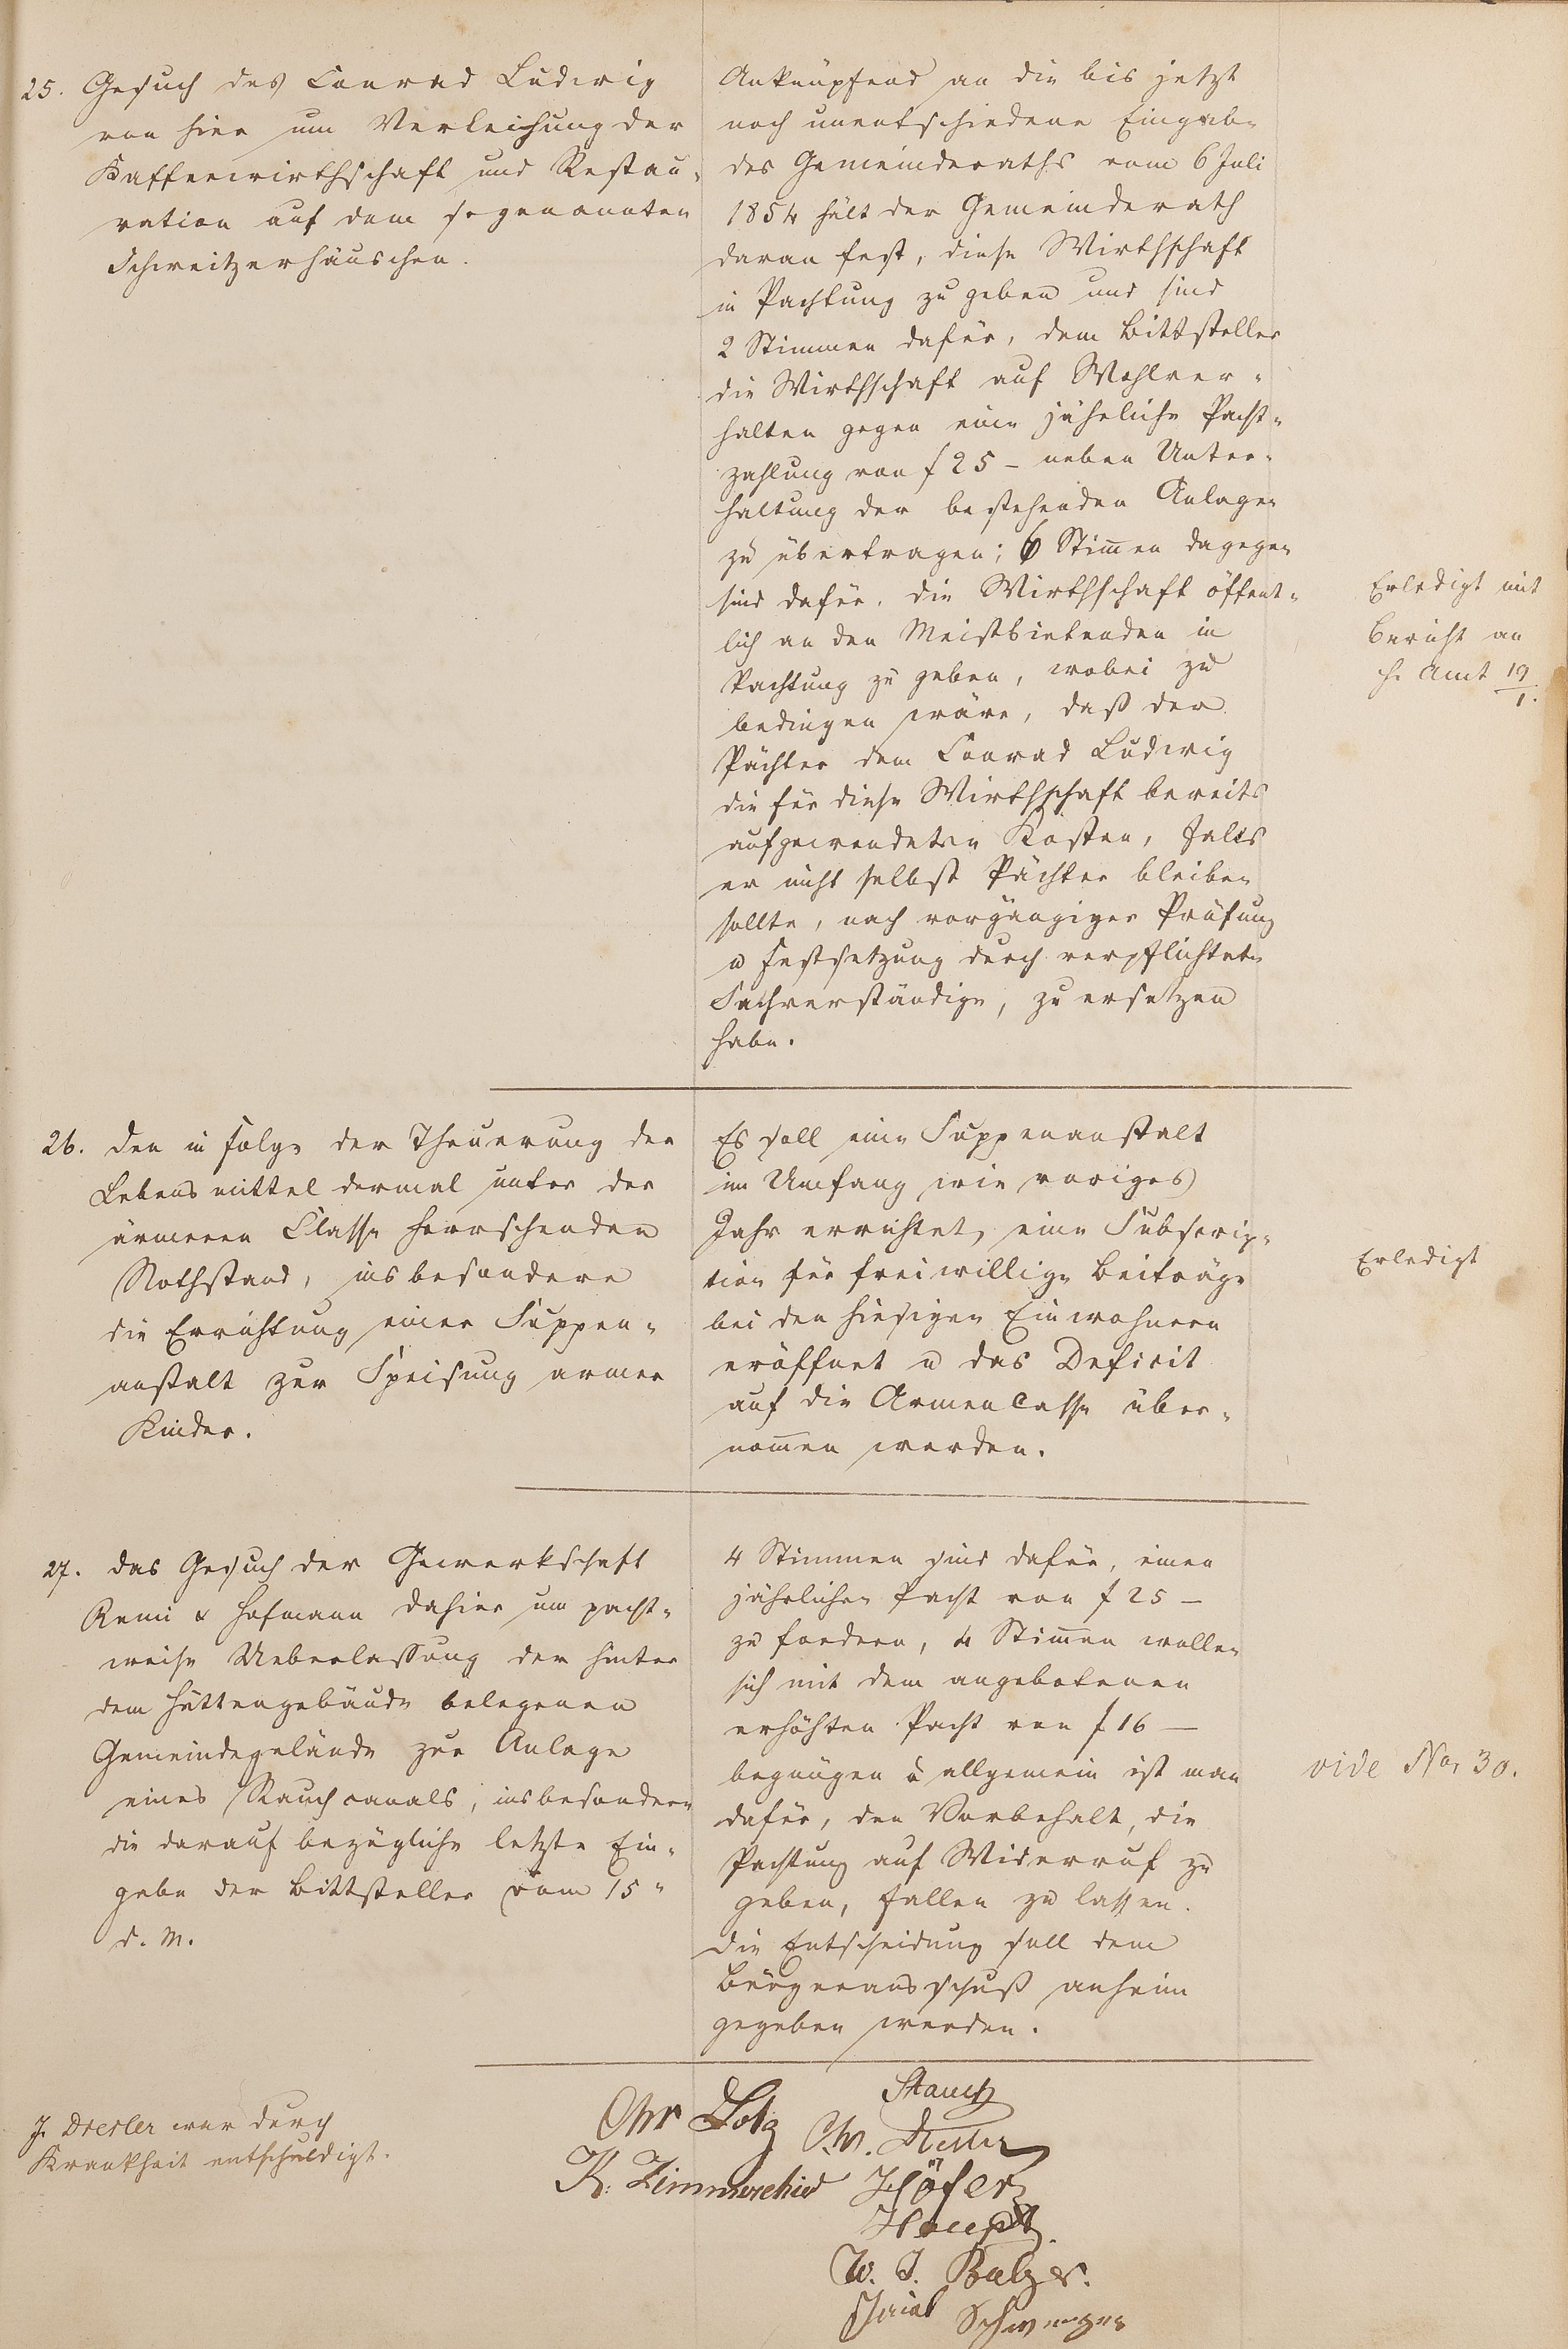 25. Gesuch des Conrad Ludwig
von hier um Verleihung der
Kaffeewirthschaft und Restau-
ration auf dem sogenannten
Schweitzerhäuschen.
Anknüpfend an die bis jetzt
noch unentschiedene Eingabe
des Gemeinderaths vom 6 Juli
1854 hält der Gemeinderath
daran fest, diese Wirthschaft
in Pachtung zu geben und sind
2 Stimmen dafür, dem Bittsteller
die Wirthschaft auf Wohlver-
halten gegen eine jährliche Pacht-
zahlung von f 25 - neben Unter-
haltung der bestehenden Anlagen
zu übertragen; 6 Stimen dagegen
sind dafür, die Wirthschaft öffent-
lich an den Meistbietenden in
Pachtung zu geben, wobei zu
bedingen wäre, daß der
Pächter dem Conrad Ludwig
die für diese Wirthschaft bereits
aufgewendeten Kosten, falls
er nicht selbst Pächter bleiben
sollte, nach vorgängiger Prüfung
u Festsetzung durch verpflichtete
Sachverständige, zu ersetzen
habe.
Erledigt mit
Bericht an
h. Amt 19/1.
26. Den in Folge der Theuerung der
Lebensmittel dermal unter der
ärmeren Classe herrschenden
Nothstand, insbesondere
die Errichtung einer Suppen-
anstalt zur Speisung armer
Kinder.
Es soll eine Suppenanstalt
im Umfang wie voriges
Jahr errichtet, eine Subscrip-
tion für freiwillige Beiträge
bei den hiesigen Einwohnern
eröffnet u das Deficit
auf die Armencasse über-
nomen werden.
Erledigt
27. Das Gesuch der Gewerkschaft
Remi & Hofmann dahier um pacht-
weise Ueberlassung der hinter
dem Hüttengebäude belegenen
Gemeindegelände zur Anlage
eines Rauchcanals, insbesondere
die darauf bezügliche letzte Ein-
gabe der Bittsteller vom 15"
d. M.
4 Stimmen sind dafür, einen
jährlichen Pacht von f 25 -
zu fordern, 4 Stimen wollen
sich mit dem angebotenen
erhöhten Pacht von f 16 -
begnügen u allgemein ist man
dafür, den Vorbehalt, die
Pachtung auf Widerruf zu
geben, fallen zu lassen.
Die Entscheidung soll dem
Bürgerausschuß anheim
gegeben werden.
vide Nor 30.
J. Dresler war durch
Krankheit entschuldigt.
Chr Lotz
K. Zimmerschied
Ch. Dresler
Höfer
Haupt
W. J. Balzer.